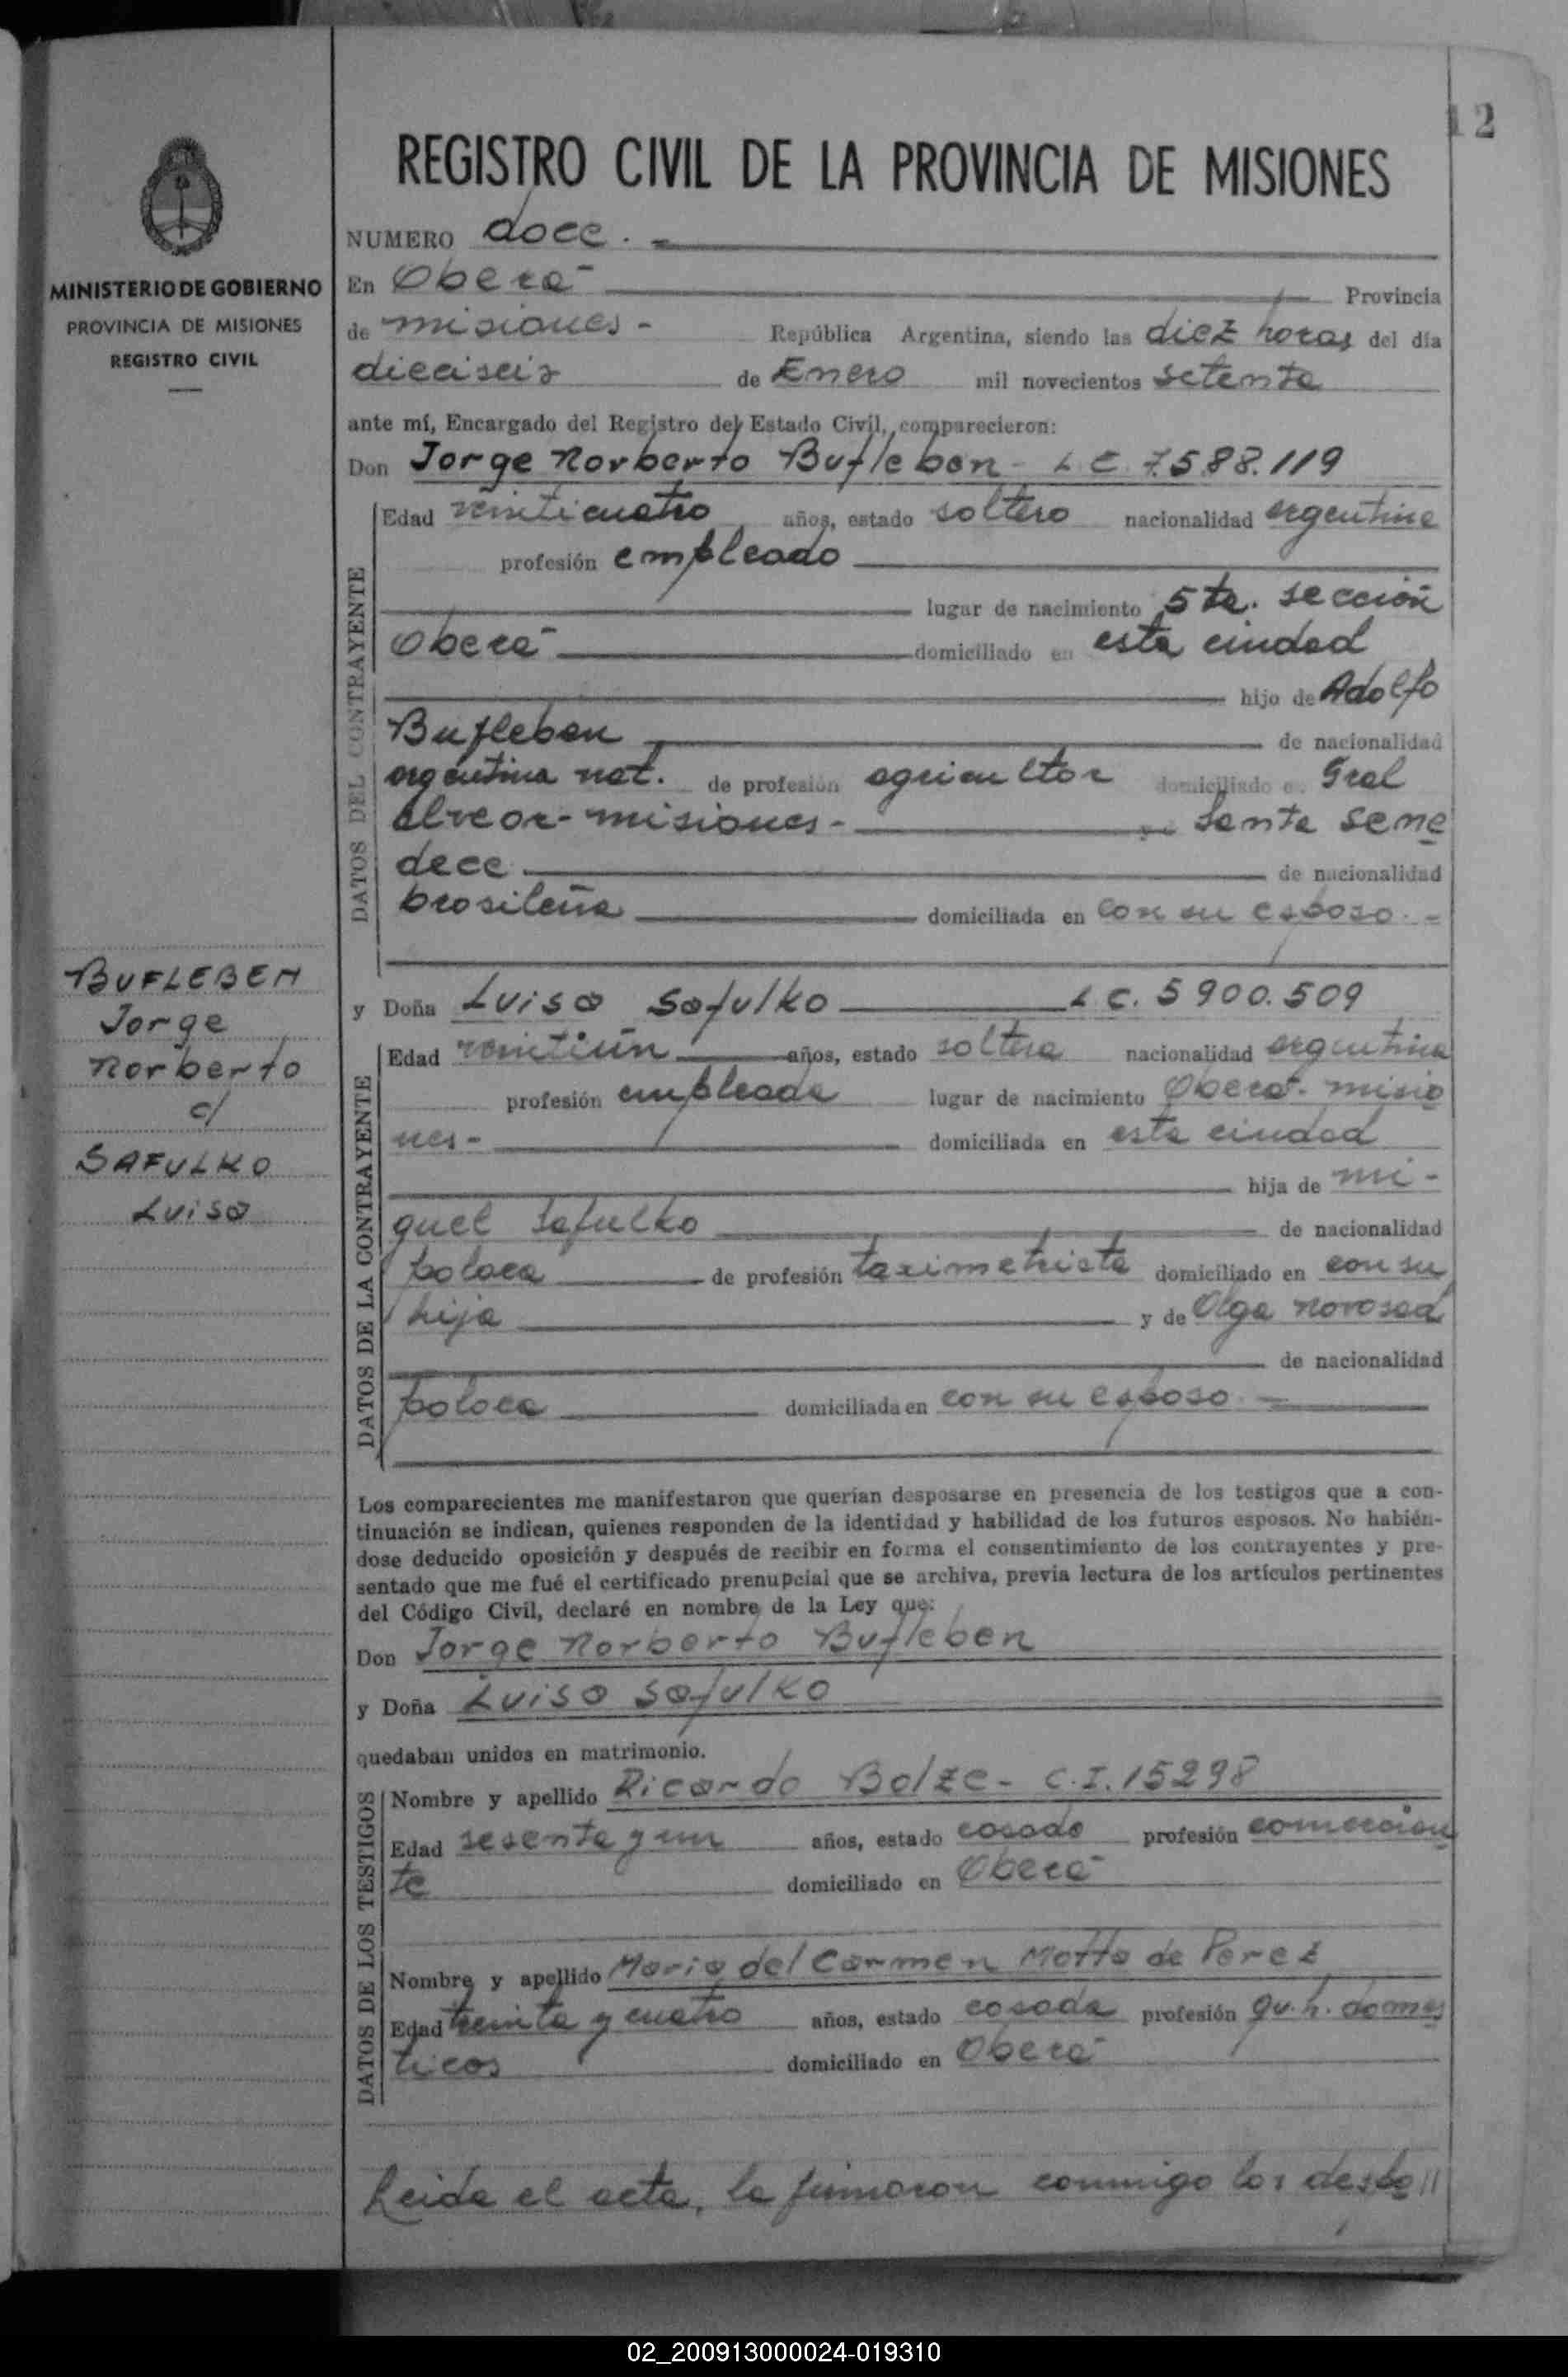 12
REGISTRO CIVIL DE LA PROVINCIA DE MISIONES
MINISTERIO DE GOBIERNO
PROVINCIA DE MISIONES
REGISTRO CIVIL
NUMERO doce.=
En Oberá Provincia
de misiones - República Argentina, siendo las diez horas del día
dieciseis de Enero mil novecientos setenta
ante mí, Encargado del Registro del Estado Civil, comparecieron:
Don Jorge Norberto Bufleben - L E 7.588.119
DATOS DEL CONTRAYENTE
Edad veinticuatro años, estado soltero nacionalidad argentina
profesión empleado
lugar de nacimiento 5ta. sección
Oberá domiciliado en esta ciudad
hijo de Adolfo
Bufleben de nacionalidad
argentina nat. de profesión agricultor domiciliado en Gral
Alvear - misiones - Santa Sene
dece de nacionalidad
brasileña domiciliada en con su esposo.-
BUFLEBEN
Jorge
Norberto
c/
SAFULKO
Luisa
y Doña Luisa Safulko L C. 5900.509
DATOS DE LA CONTRAYENTE
Edad veintiún años, estado soltera nacionalidad argentina
profesión empleada lugar de nacimiento Oberá - misio
nes - domiciliada en esta ciudad
hija de mi -
guel Safulko de nacionalidad
polaca de profesión taximetrista domiciliado en con su
hija y de Olga Novosad
de nacionalidad
polaca domiciliada en con su esposo.-
Los comparecientes me manifestaron que querían desposarse en presencia de los testigos que a con-
tinuación se indican, quienes responden de la identidad y habilidad de los futuros esposos. No habién-
dose deducido oposición y después de recibir en forma el consentimiento de los contrayentes y pre-
sentado que me fué el certificado prenupcial que se archiva, previa lectura de los artículos pertinentes
del Código Civil, declaré en nombre de la Ley que:
Don Jorge Norberto Bufleben
y Doña Luisa Safulko
quedaban unidos en matrimonio.
DATOS DE LOS TESTIGOS
Nombre y apellido Ricardo Bolze - C.I. 15298
Edad sesenta y un años, estado casado profesión comercian
te domiciliado en Oberá
Nombre y apellido Maria del Carmen Motta de Perez
Edad treinta y cuatro años, estado casada profesión qu. h. domes
ticos domiciliado en Oberá
Leida el acta, la firmaron conmigo los desbo//
02_200913000024-019310